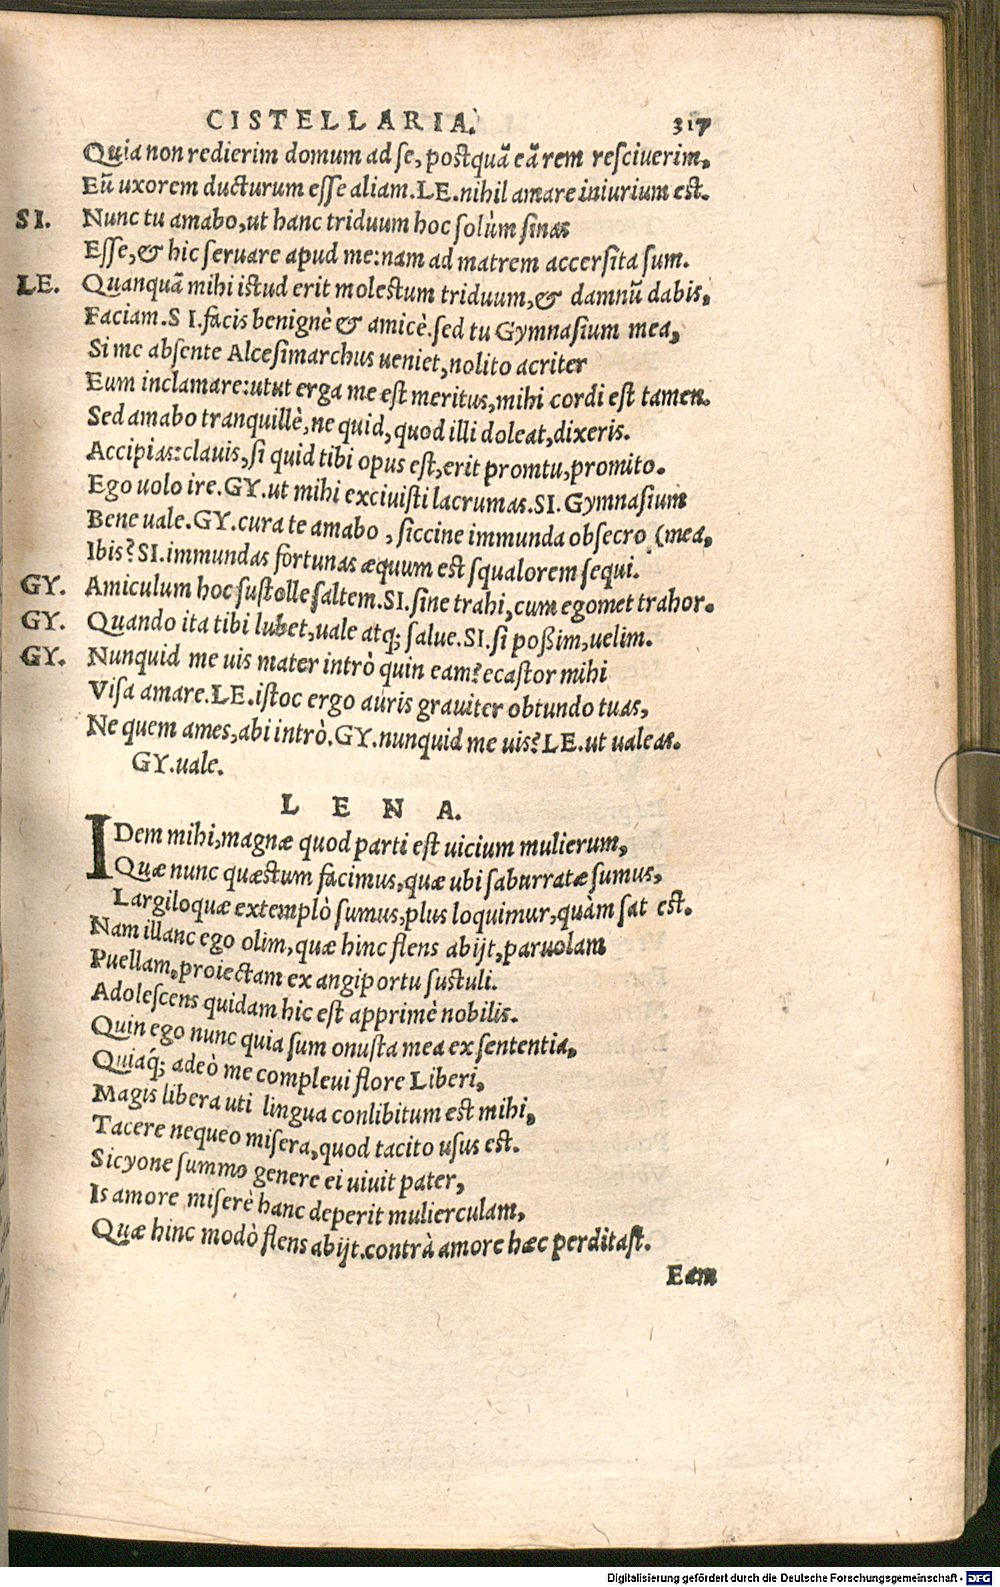 CISTELLARIA. 317
Quia non redierim domum ad se, postquã eã rem resciuerim,
Eũ uxorem ducturum esse aliam.LE.nihil amare iniurium est.
SI. Nunc tu amabo,ut hanc triduum hoc solùm sinas
Esse,& hic seruare apud me:nam ad matrem accersita sum.
LE. Quanquã mihi istud erit molestum triduum,& damnũ dabis,
Faciam.SI.facis benignè & amicè.sed tu Gymnasium mea,
Si me absente Alcesimarchus ueniet,nolito acriter
Eum inclamare:utut erga me est meritus,mihi cordi est tamen.
Sed amabo tranquillè,ne quid,quod illi doleat,dixeris.
Accipias:clauis,si quid tibi opus est,erit promtu,promito.
Ego uolo ire.GY.ut mihi exciuisti lacrumas.SI.Gymnasium
Bene uale.GY.cura te amabo, siccine immunda obsecro (mea,
Ibis?SI.immundas fortunas æquum est squalorem sequi.
GY. Amiculum hoc sustolle saltem.SI.sine trahi,cum egomet trahor.
GY. Quando ita tibi lubet,uale atq; salue.SI.si poßim,uelim.
GY. Nunquid me uis mater intrò quin eam?ecastor mihi
Visa amare.LE.istoc ergo auris grauiter obtundo tuas,
Ne quem ames,abi intrò.GY.nunquid me uis?LE.ut ualeas.
GY.uale.
LENA.
IDem mihi,magnæ quod parti est uicium mulierum,
Quæ nunc quæstum facimus,quæ ubi saburratæ sumus,
Largiloquæ extemplò sumus,plus loquimur,quàm sat est.
Nam illanc ego olim,quæ hinc flens abijt,paruolam
Puellam,proiectam ex angiportu sustuli.
Adolescens quidam hic est apprimè nobilis.
Quin ego nunc quia sum onusta mea ex sententia,
Quiaq́; adeò me compleui flore Liberi,
Magis libera uti lingua conlibitum est mihi,
Tacere nequeo misera,quod tacito usus est.
Sicyone summo genere ei uiuit pater,
Is amore miserè hanc deperit mulierculam,
Quæ hinc modò flens abijt.contrà amore hæc perditast.
Eam
Digitalisierung gefördert durch die Deutsche Forschungsgemeinschaft - DFG